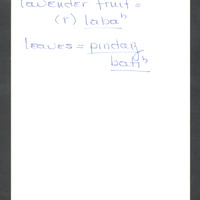 lavender fruit =
(r) labaʰ
leaves = pindaŋ
baɦʰ